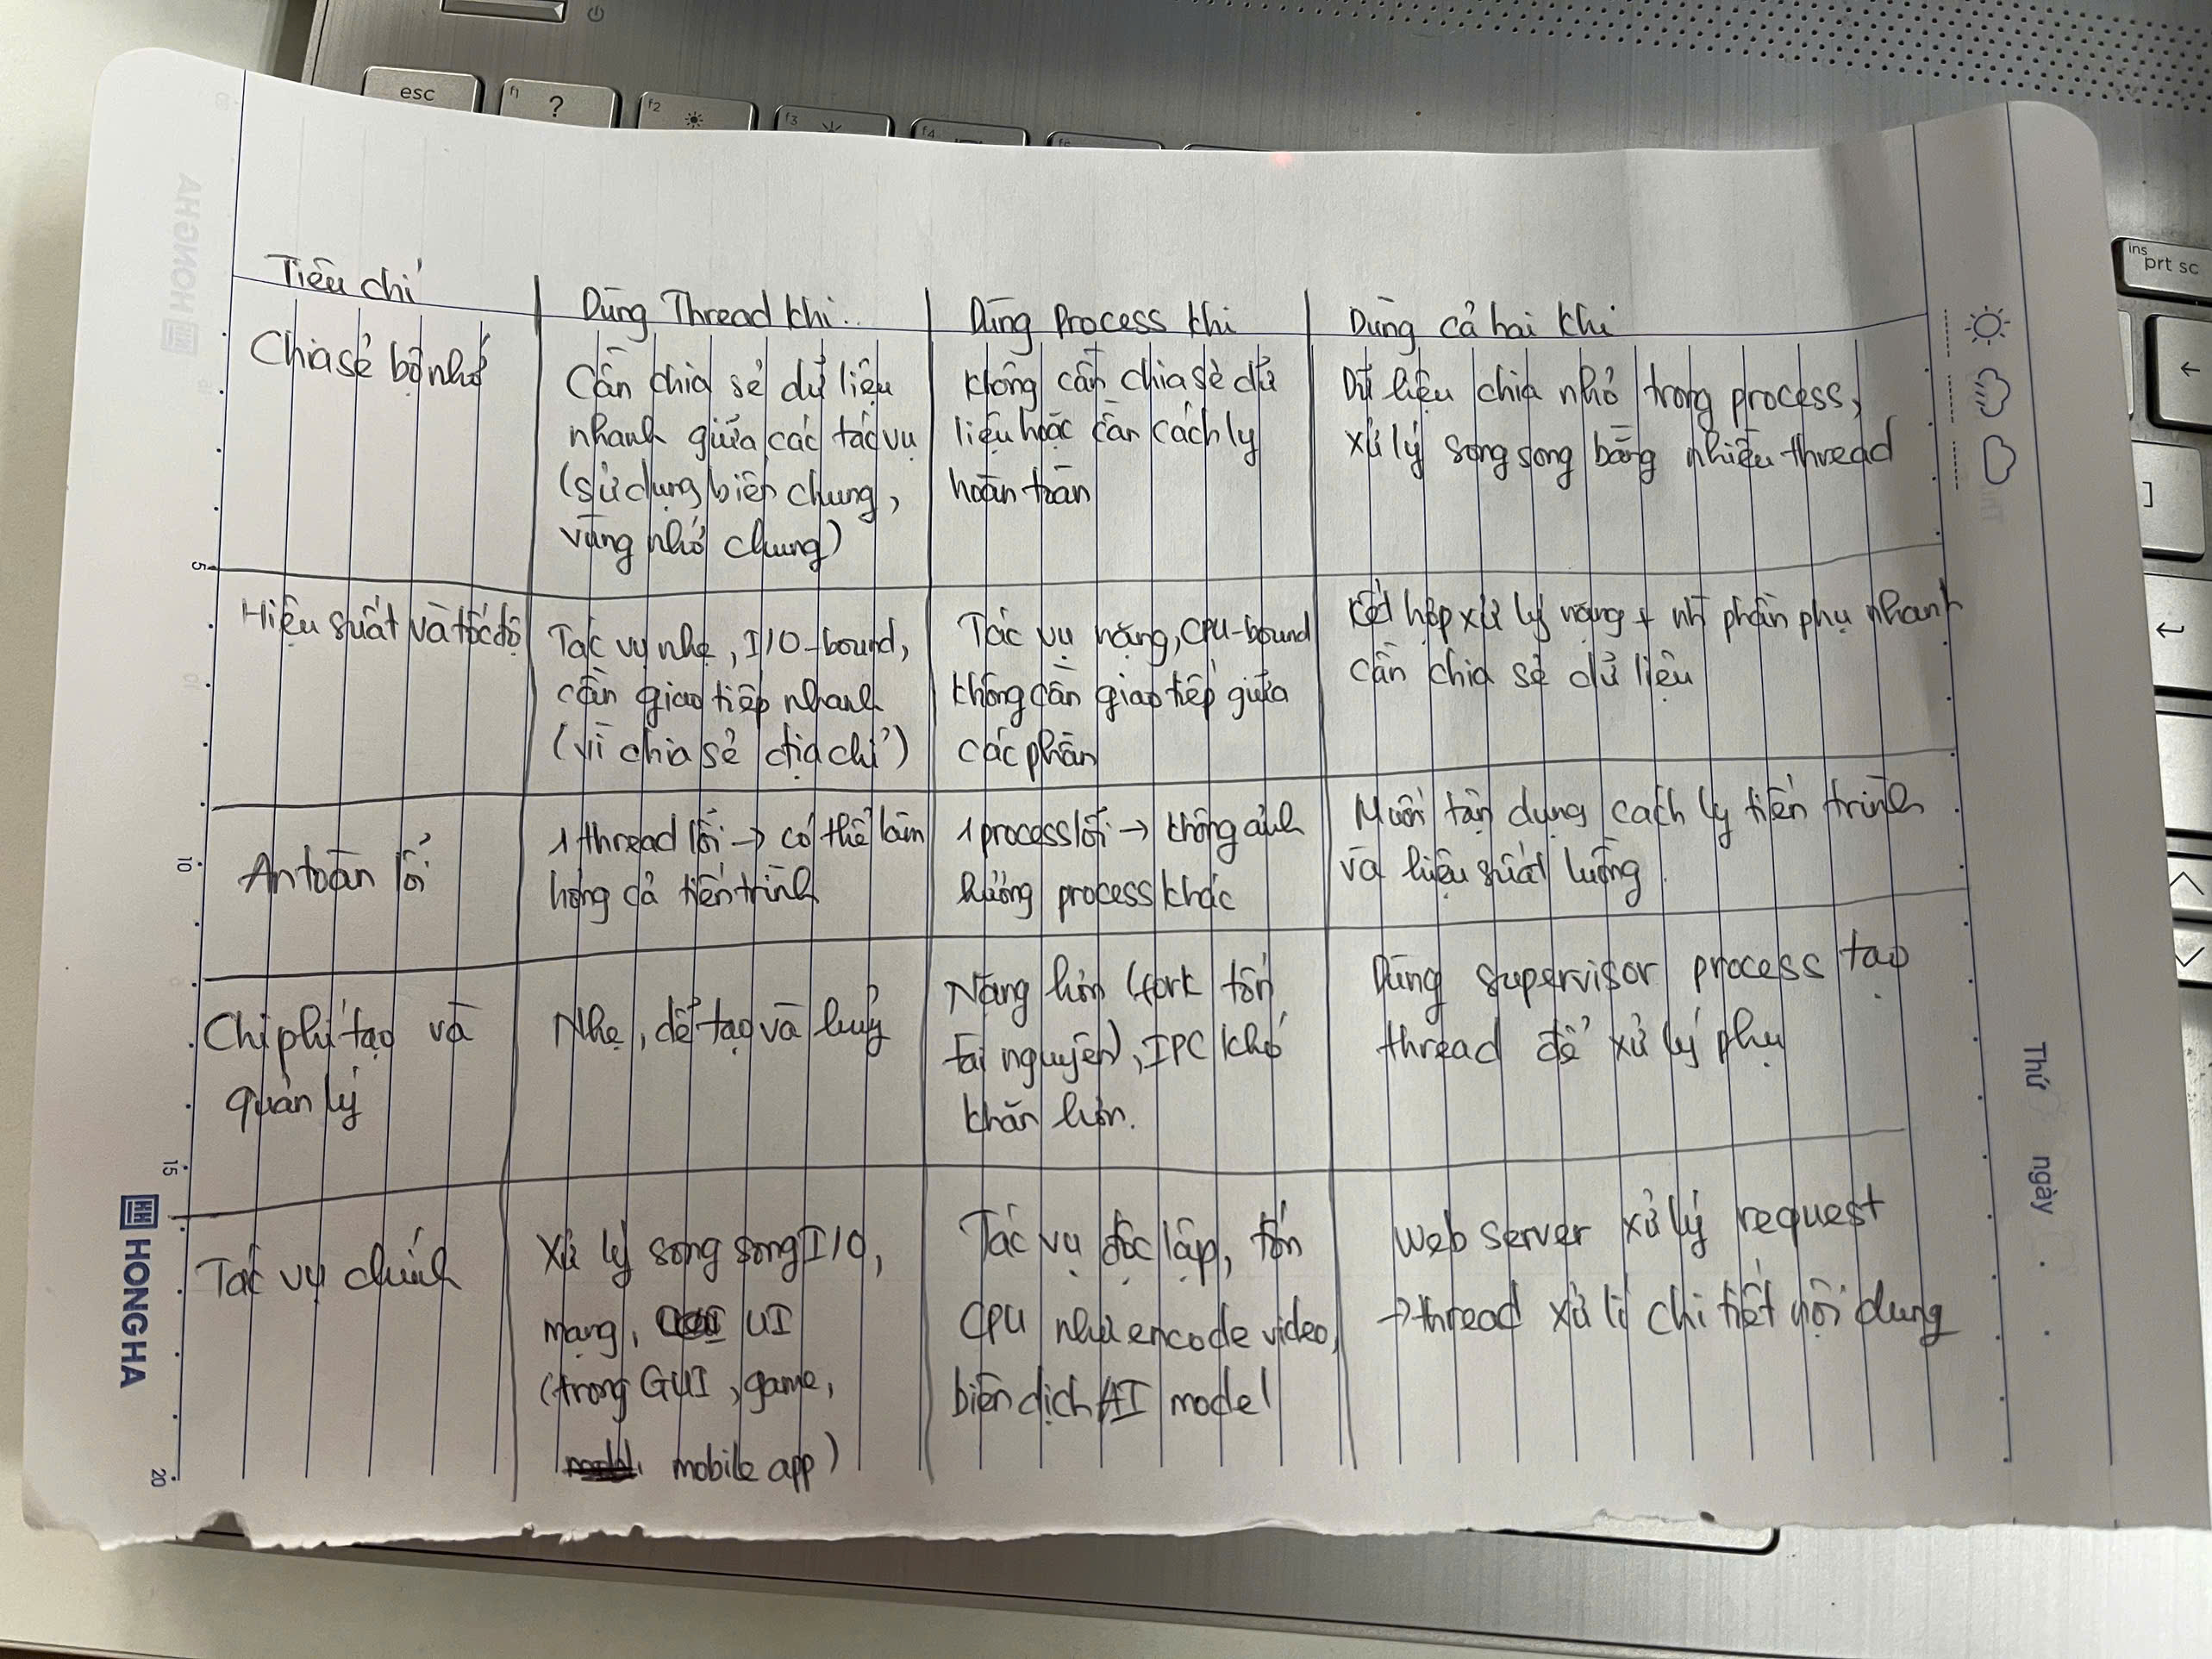 esc
f1 ?
f2
f3
f4
ins
prt sc
]
HONGHA
Tiêu chí
Dùng Thread khi..
Dùng Process khi
Dùng cả hai khi
Chia sẻ bộ nhớ
Cần chia sẻ dữ liệu
nhanh giữa các tác vụ
(sử dụng biến chung,
vùng nhớ chung)
Không cần chia sẻ dữ
liệu hoặc cần cách ly
hoàn toàn
Dữ liệu chia nhỏ trong process,
xử lý song song bằng nhiều thread
Hiệu suất và tốc độ
Tác vụ nhẹ, I/O-bound,
cần giao tiếp nhanh
(vì chia sẻ địa chỉ)
Tác vụ nặng, CPU-bound
không cần giao tiếp giữa
các phần
Kết hợp xử lý nặng + phần phụ nhanh
cần chia sẻ dữ liệu
An toàn lỗi
1 thread lỗi → có thể làm
hỏng cả tiến trình
1 process lỗi → không ảnh
hưởng process khác
Muốn tận dụng cách ly tiến trình
và hiệu suất luồng.
Chi phí tạo và
quản lý
Nhẹ, dể tạo và huỷ
Nặng hơn (fork tốn
tài nguyên), IPC khó
khăn hơn.
Dùng supervisor process tạo
thread để xử lý phụ
Tác vụ chính
Xử lý song song I/O,
mạng, UI
(trong GUI, game,
mobile app)
Tác vụ độc lập, tốn
CPU như encode video,
biên dịch AI model
Web server xử lý request
→ thread xử lí chi tiết nội dung
5
10
15
20
HONGHA
Thứ ngày